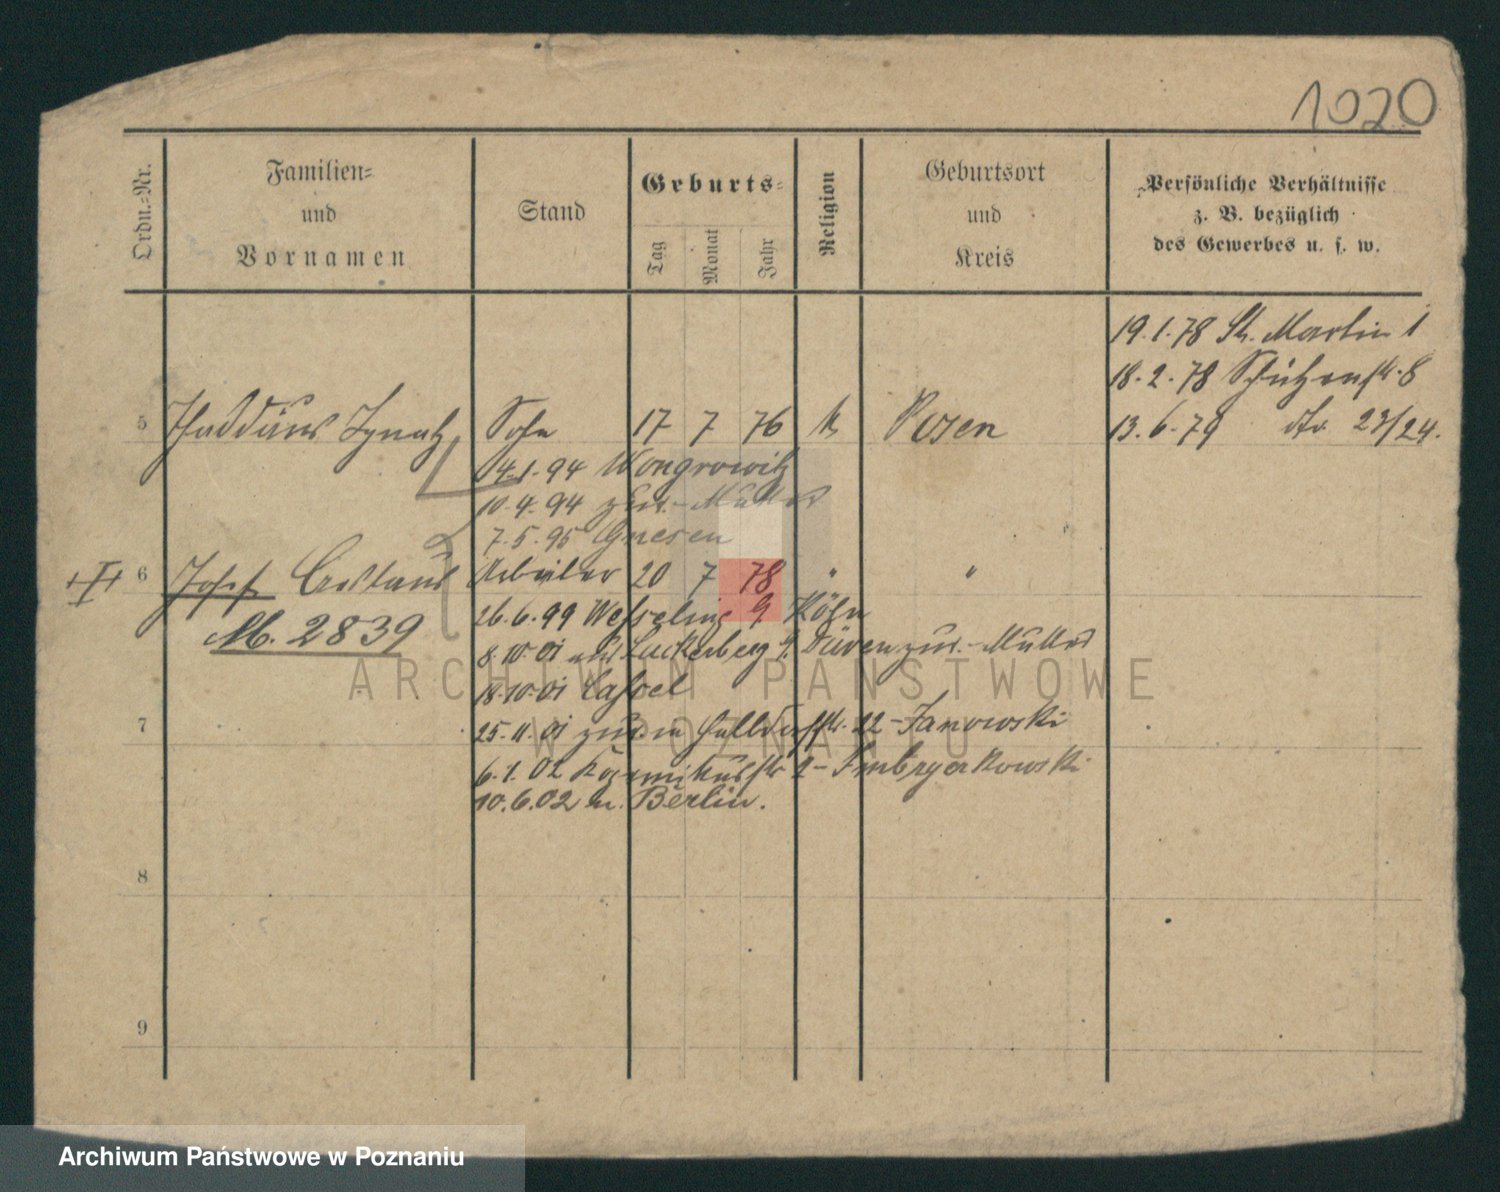 1020
Ordn.-Nr.
Familien-
und
Vornamen
Stand
Geburts-
Tag
Monat
Jahr
Religion
Geburtsort
und
Kreis
Persönliche Verhältnisse
z. B. bezüglich
des Gewerbes u. s. w.
19.1.78 St. Martin 1
18.2.78 Schützenstr. 8
13.6.79 dto. 23/24.
5 Thaddäus Ignatz Sohn 17 7 76 k Posen
4.1.94 Wongrowitz
10.4.94 zur. Mutter
7.5.95 Gnesen
6 Josef Arbeiter 20 7 78 " "
M. 2839
26.6.99 Wesseling b. Köln
8.10.01 aus Luckerberg b. Düren zur. Mutter
18.10.01 Cassel
25.11.01 zur. 22 - Janowski
6.1.02 2 -
10.6.02 n. Berlin.
7
8
9
ARCHIWUM PAŃSTWOWE
W POZNANIU
Archiwum Państwowe w Poznaniu